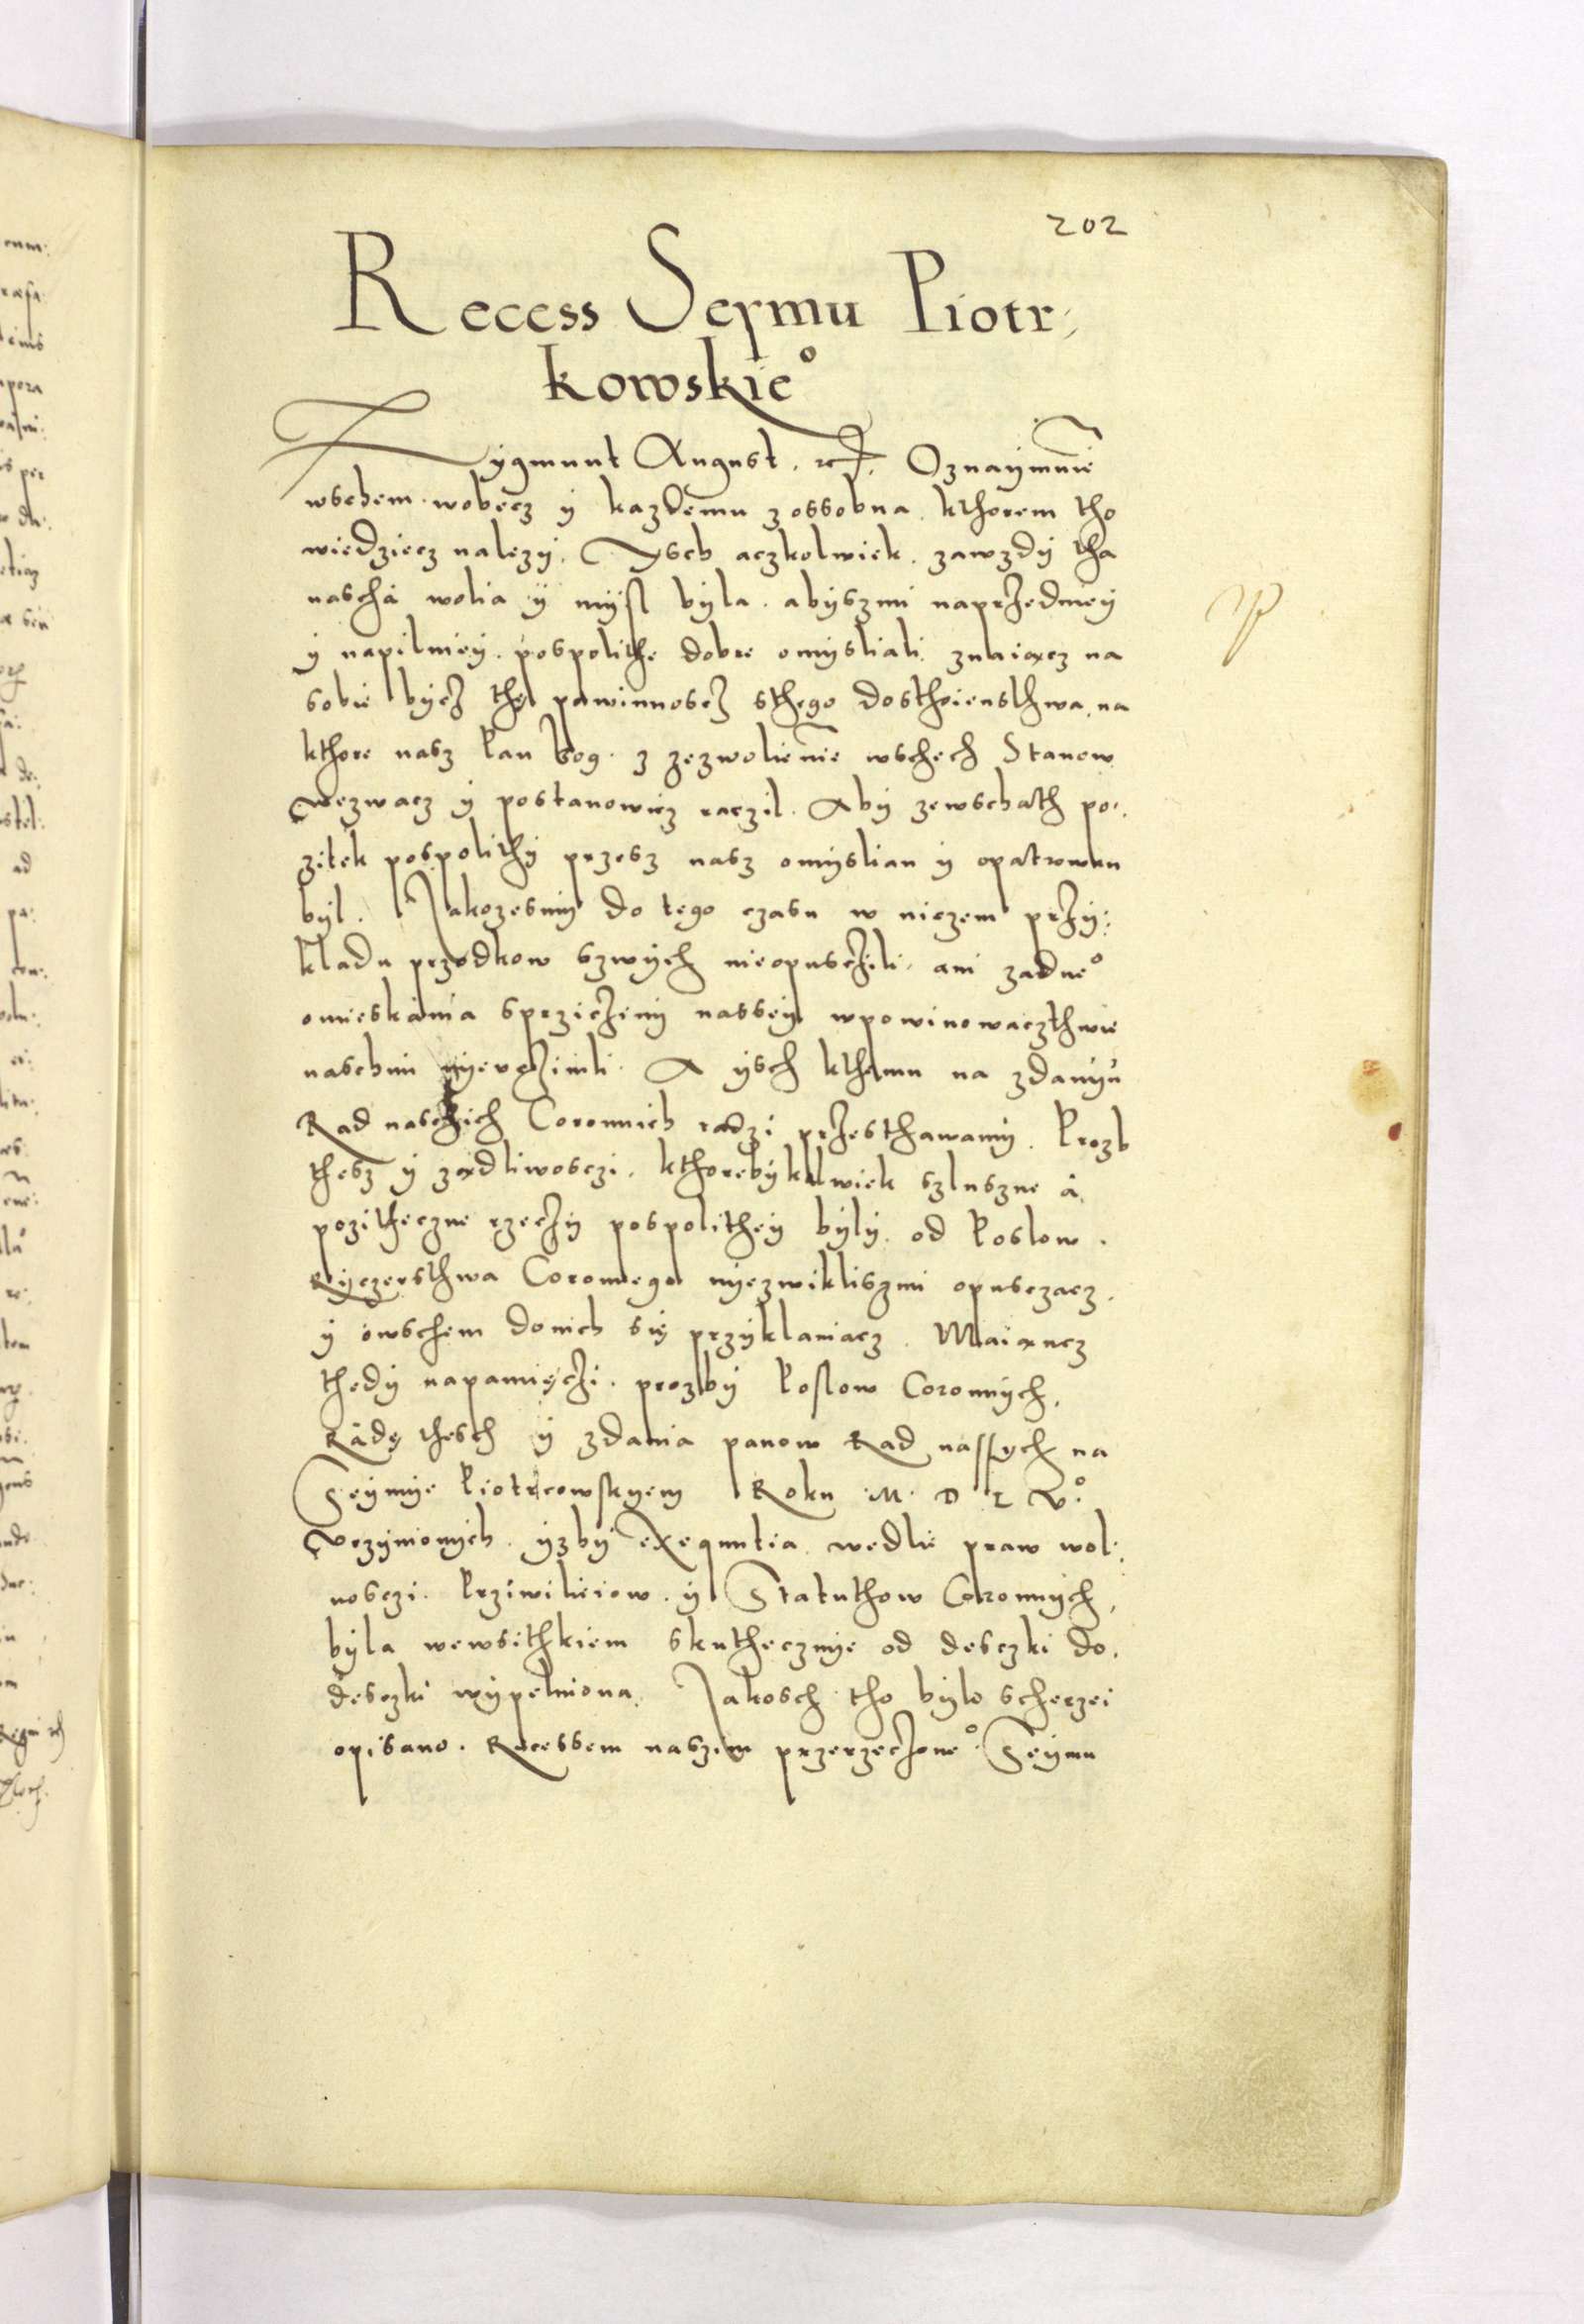 202
Recess Seymu Piotr,
kowskie°
Zygmunt August. etc. Oznaymuie
wschem wobecz ÿ kazdemu z ossobna. kthorem tho
wiedziecz nalezÿ. Ysch aczkolwiek. zawzdÿ tha
nascha wolia ÿ mÿsl bÿla. abÿszmi naprzedmieÿ
ÿ napilnieÿ. pospolithe dobre omÿsliali. znaiącz na
sobie bÿcz thę powinnoscz sthego dosthoiensthwa. na
kthore nasz Pan bog. z zezwolienie wschech Stanow
wezwacz ÿ postanowicz raczil. Abÿ zewschąth po.
zitek pospolithÿ przesz nasz omÿslian ÿ opatrowan
bÿl. Jakozesmÿ do tego czasu w niczem przÿ:
kladu przodkow szwÿch nieopusczili. ani zadne°
omieskania sprziczinÿ nasseÿ wpowinowaczthwie
naschim nÿeuczinili. A ÿsch kthemu na zdanÿu
Rad naschich Coronnich radzi przesthawamÿ. Prozb
thesz ÿ ządliwosczi. kthorebÿkolwiek szluszne a
pozitheczne rzeczÿ pospolitheÿ bÿlÿ. od Poslow.
Rÿczersthwa Coronnego nÿezwikliszmi opusczacz.
ÿ owschem donich się przÿklaniacz. Maiancz
thedÿ napamięczi. prozbÿ Poslow Coronnÿch.
Radę thesch ÿ zdania panow Rad nassych na
Seÿmÿe Piotrcowskyem Roku .M. D L V.°
vczÿnionÿch. ÿzbÿ Exequutia wedlie praw wol:
nosczi. Prziwilieiow. ÿ Statuthow Coronnÿch,
bÿla wewsithkiem skuthecznÿe od desczki do.
desczki wÿpelniona. Jakosch tho bÿlo scherzei
opisano. Recessem naszim przerzeczone° Seÿmu